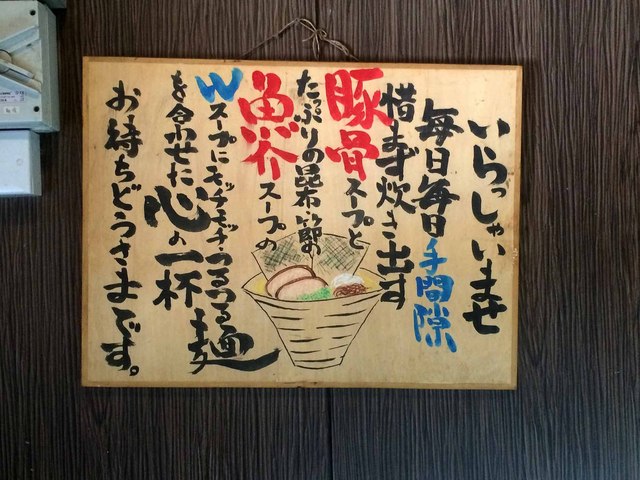 いらっしゃいませ
毎日毎日手間隙
惜まず炊き出す
豚骨スープと
たっぷりの昆布節の
魚介スープの
Wスープにモッチモッチつるつる麺
を合わせた心の一杯
お待ちどうさまです。